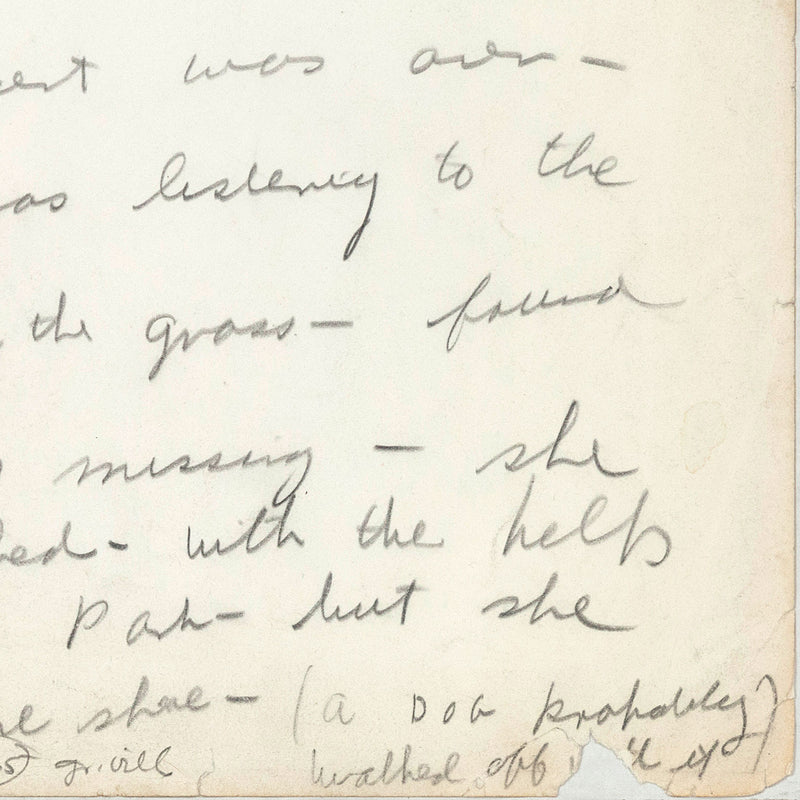 was over -
listening to the
the grass - found
missing - she
with the help
Park - but she
shoe - (a Dog probably)
walked off